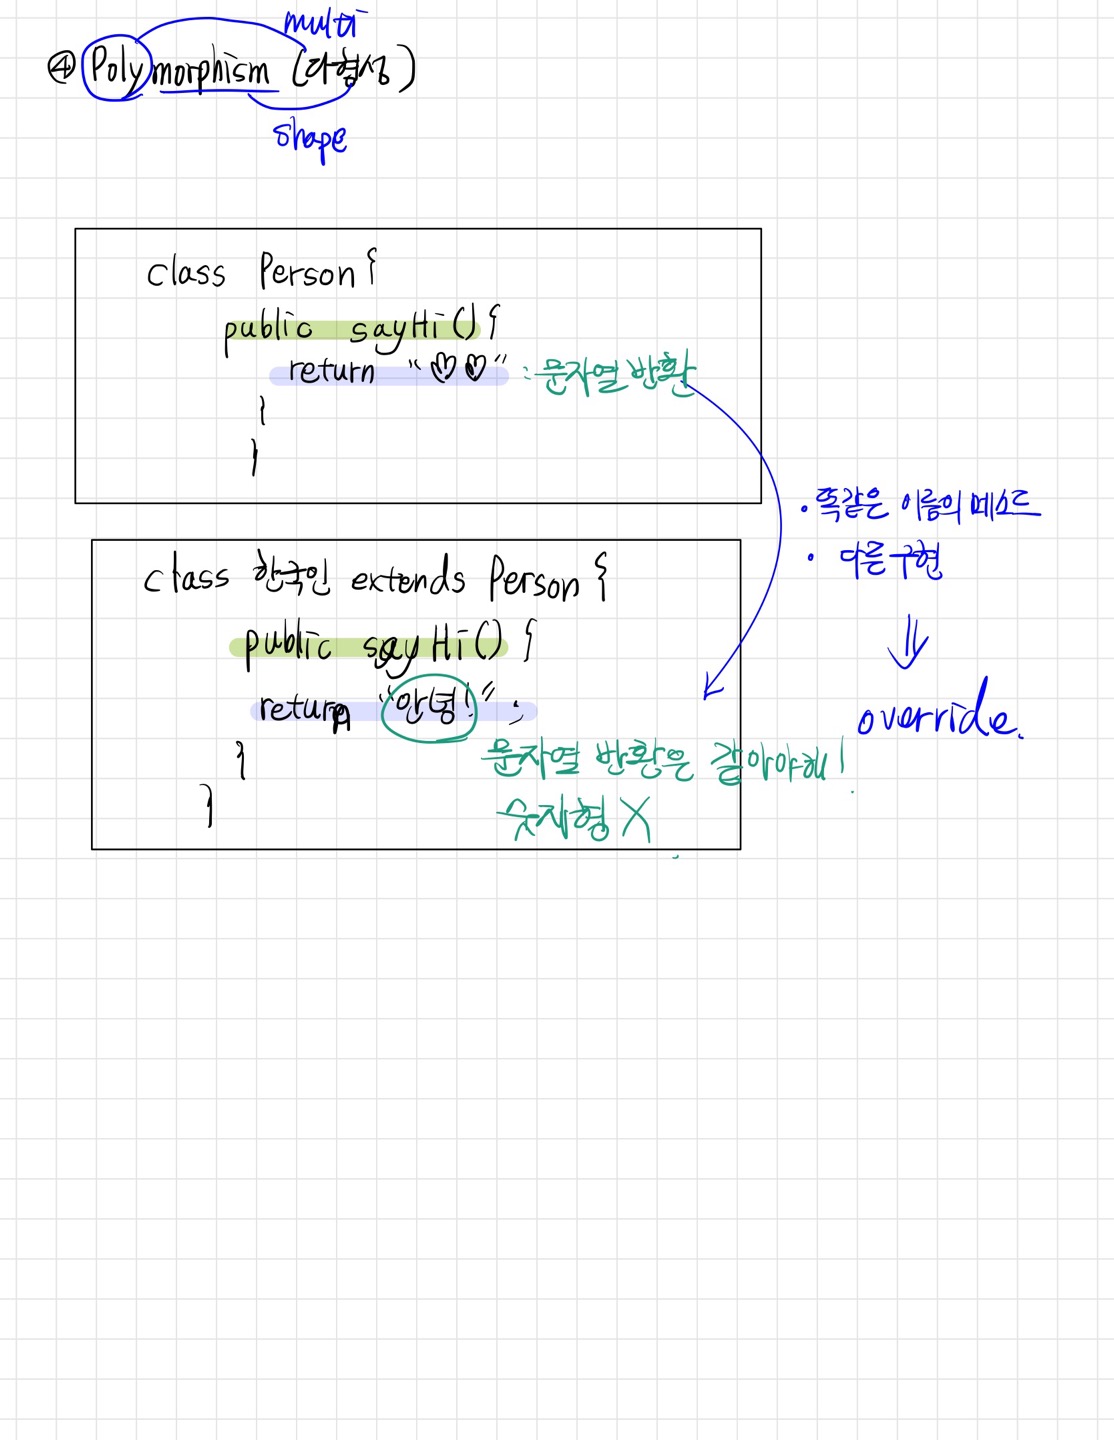 multi
④ Polymorphism (다형성)
shape
class Person {
public sayHi() {
return "♡♡" : 문자열 반환
}
}
· 똑같은 이름의 메소드
· 다른 구현
⇓
override.
class 한국인 extends Person {
public sayHi() {
return "안녕!" ;
}
문자열 반환은 같아야해!
}
숫자형 X